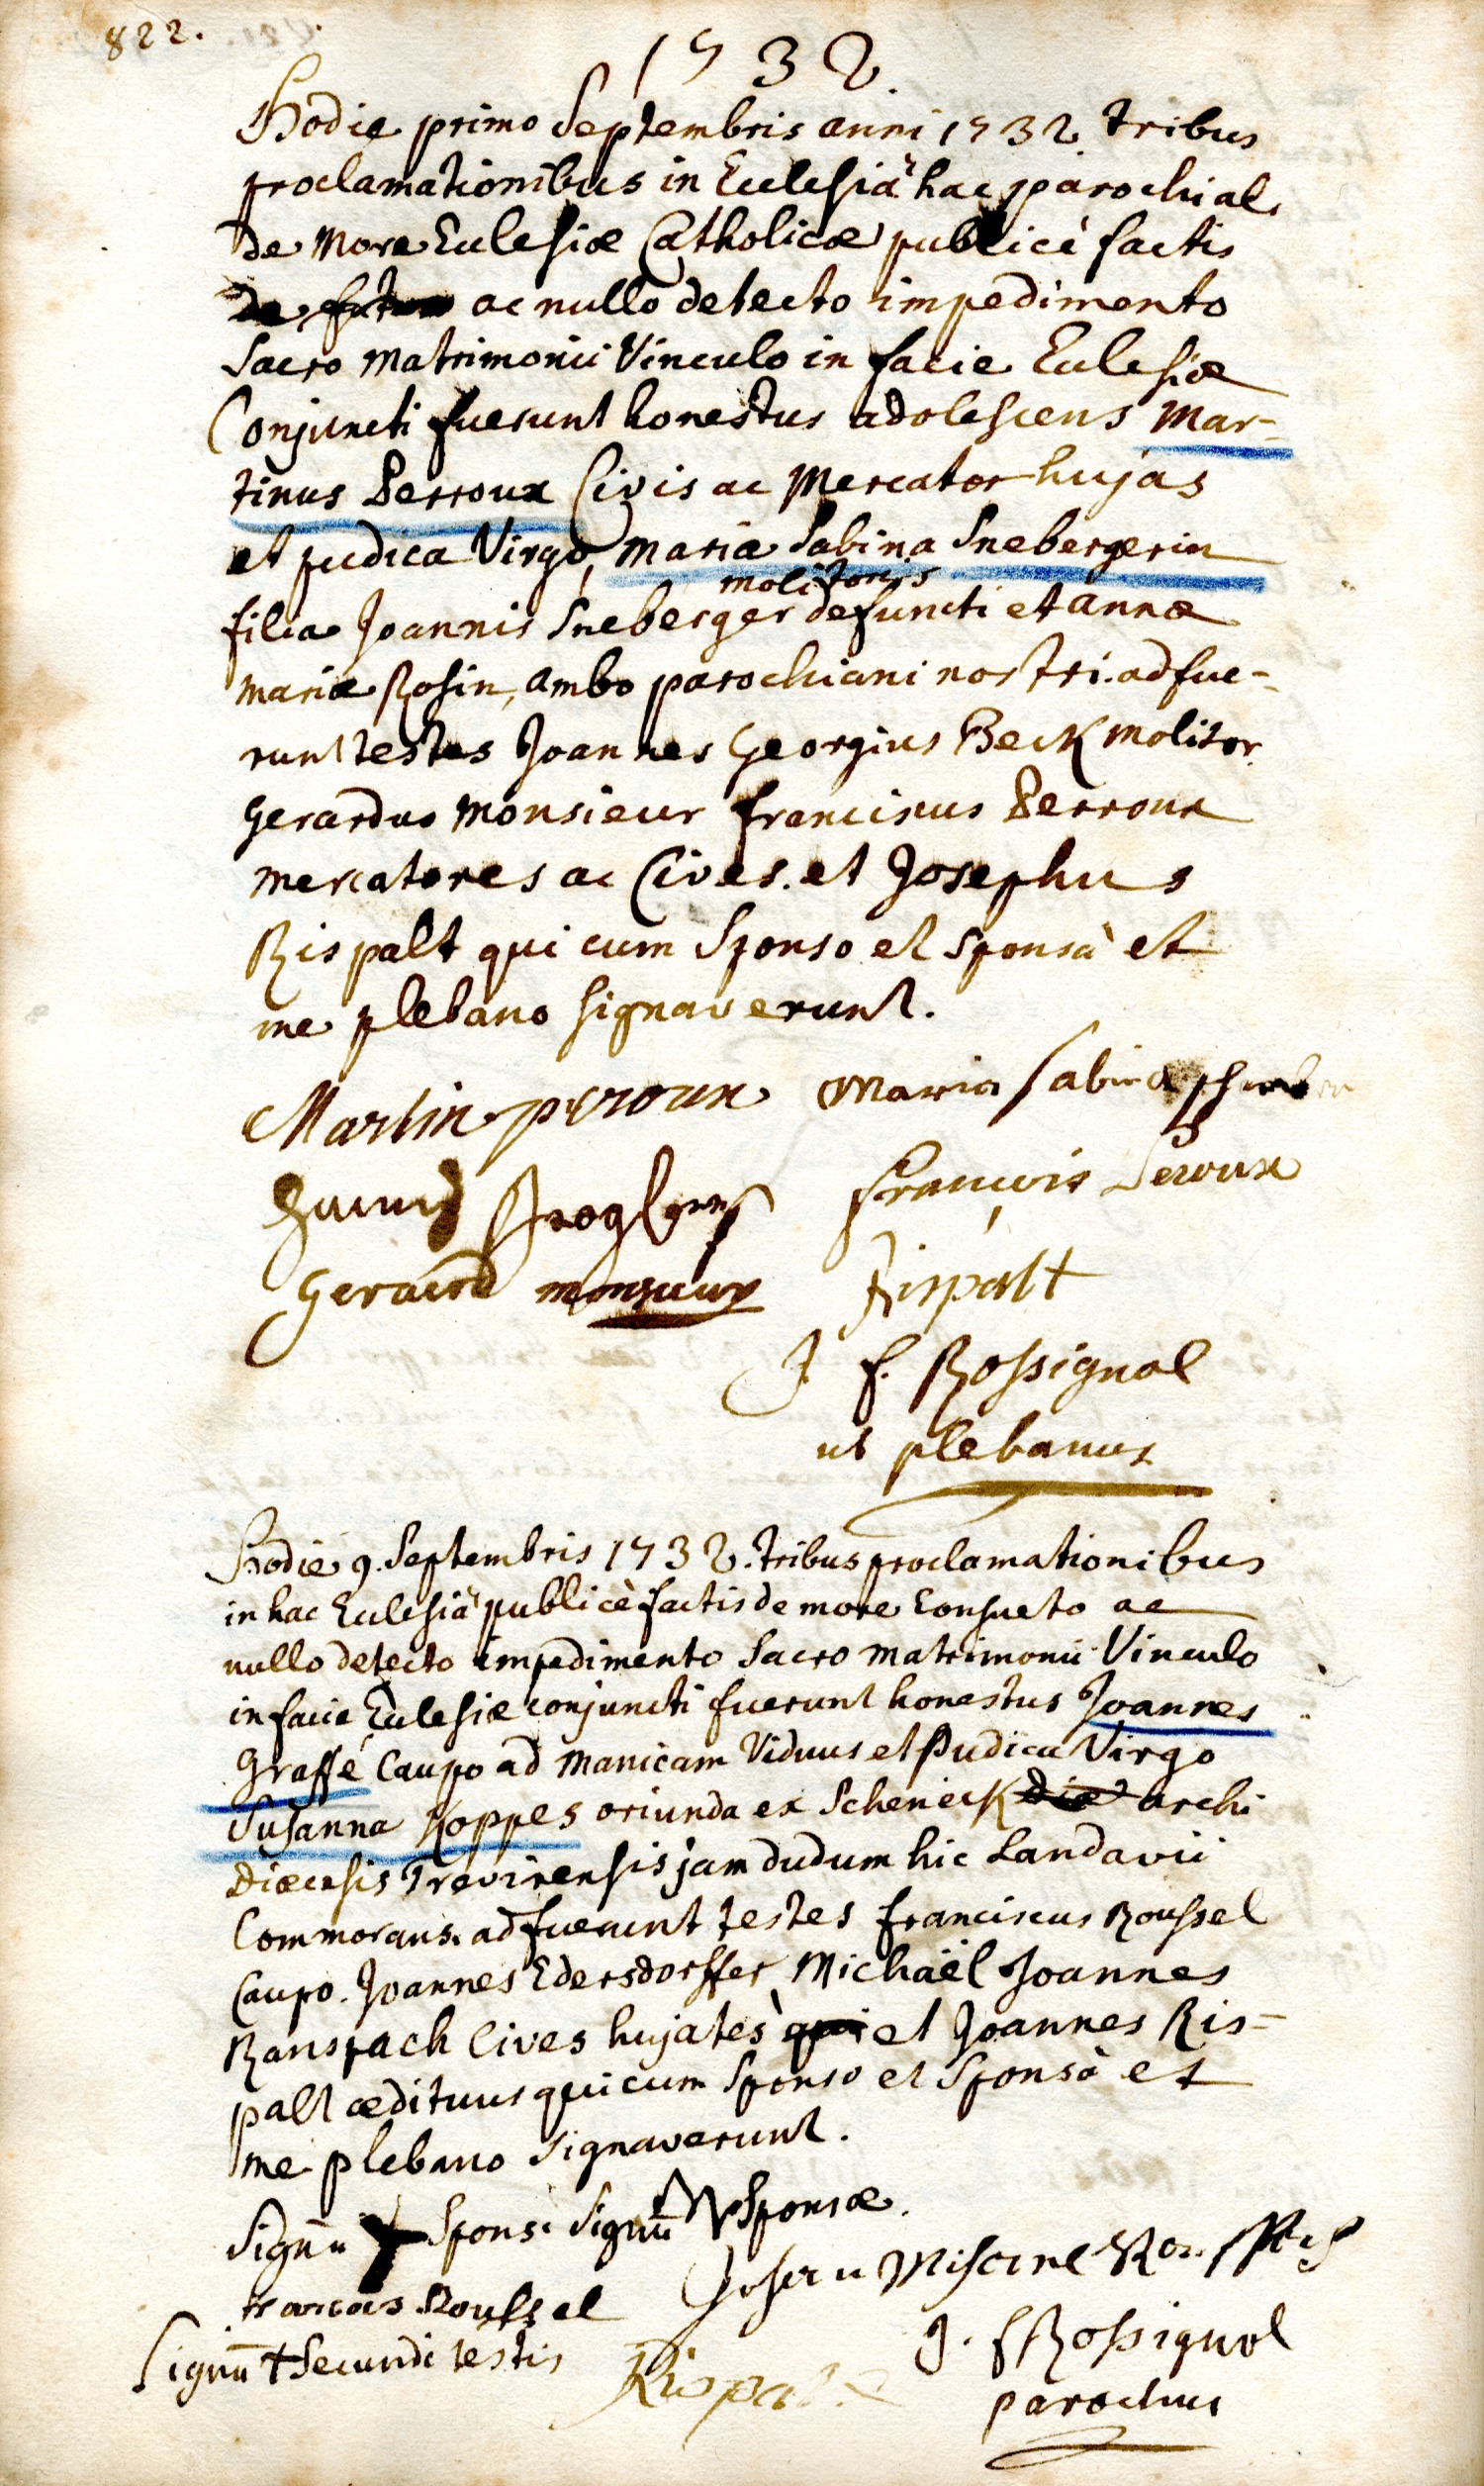 822.
1732
Hodie primo Septembris anni 1732 tribus
proclamationibus in Ecclesiâ hac parochiali
de More Ecclesiæ Catholicæ publicè factis
ac nullo detecto impedimento
Sacro Matrimonii Vinculo in facie Ecclesiæ
Conjuncti fuerunt honestus adolescens Mar-
tinus Perroux Civis ac Mercator hujas
et pudica Virgo, Maria Sabina Snebergerin
molitoris
filia Joannis Sneberger defuncti et annæ
mariæ Rosin, ambo parochiani nostri. adfue-
runt testes Joannes Georgius Beck molitor.
Gerardus Monsieur franciscus Perroux
mercatores ac Cives. et Josephus
Rispalt qui cum Sponso et Sponsâ et
me plebano signaverunt.
Martin peroux Maria Sabina
François Peroux
Gerard monsieur Rispalt
J. f. Rossignol
ut plebanus
Hodie 9. Septembris 1732. tribus proclamationibus
in hac Ecclesiâ publicè factis de more Consueto ac
nullo detecto impedimento Sacro Matrimonii Vinculo
in facie Ecclesiæ conjuncti fuerunt honestus Joannes
Graffé Caupo ad Manicam Viduus et Pudica Virgo
Susanna Koppes oriunda ex Scheneck archi
Diœcesis Trevirensis jam dudum hic Landavii
Commorans. adfuerunt testes franciscus Roussel
Caupo. Joannes Edersdorffer Michaël Joannes
Ranspach Cives hujates et Joannes Ris-
palt ædituus qui cum Sponso et Sponsâ et
me plebano signaverunt.
Signū Sponsi Signū Sponsæ.
francois Roussel
Signū + Secundi testis Rispalt
J. f Rossignol
parochus